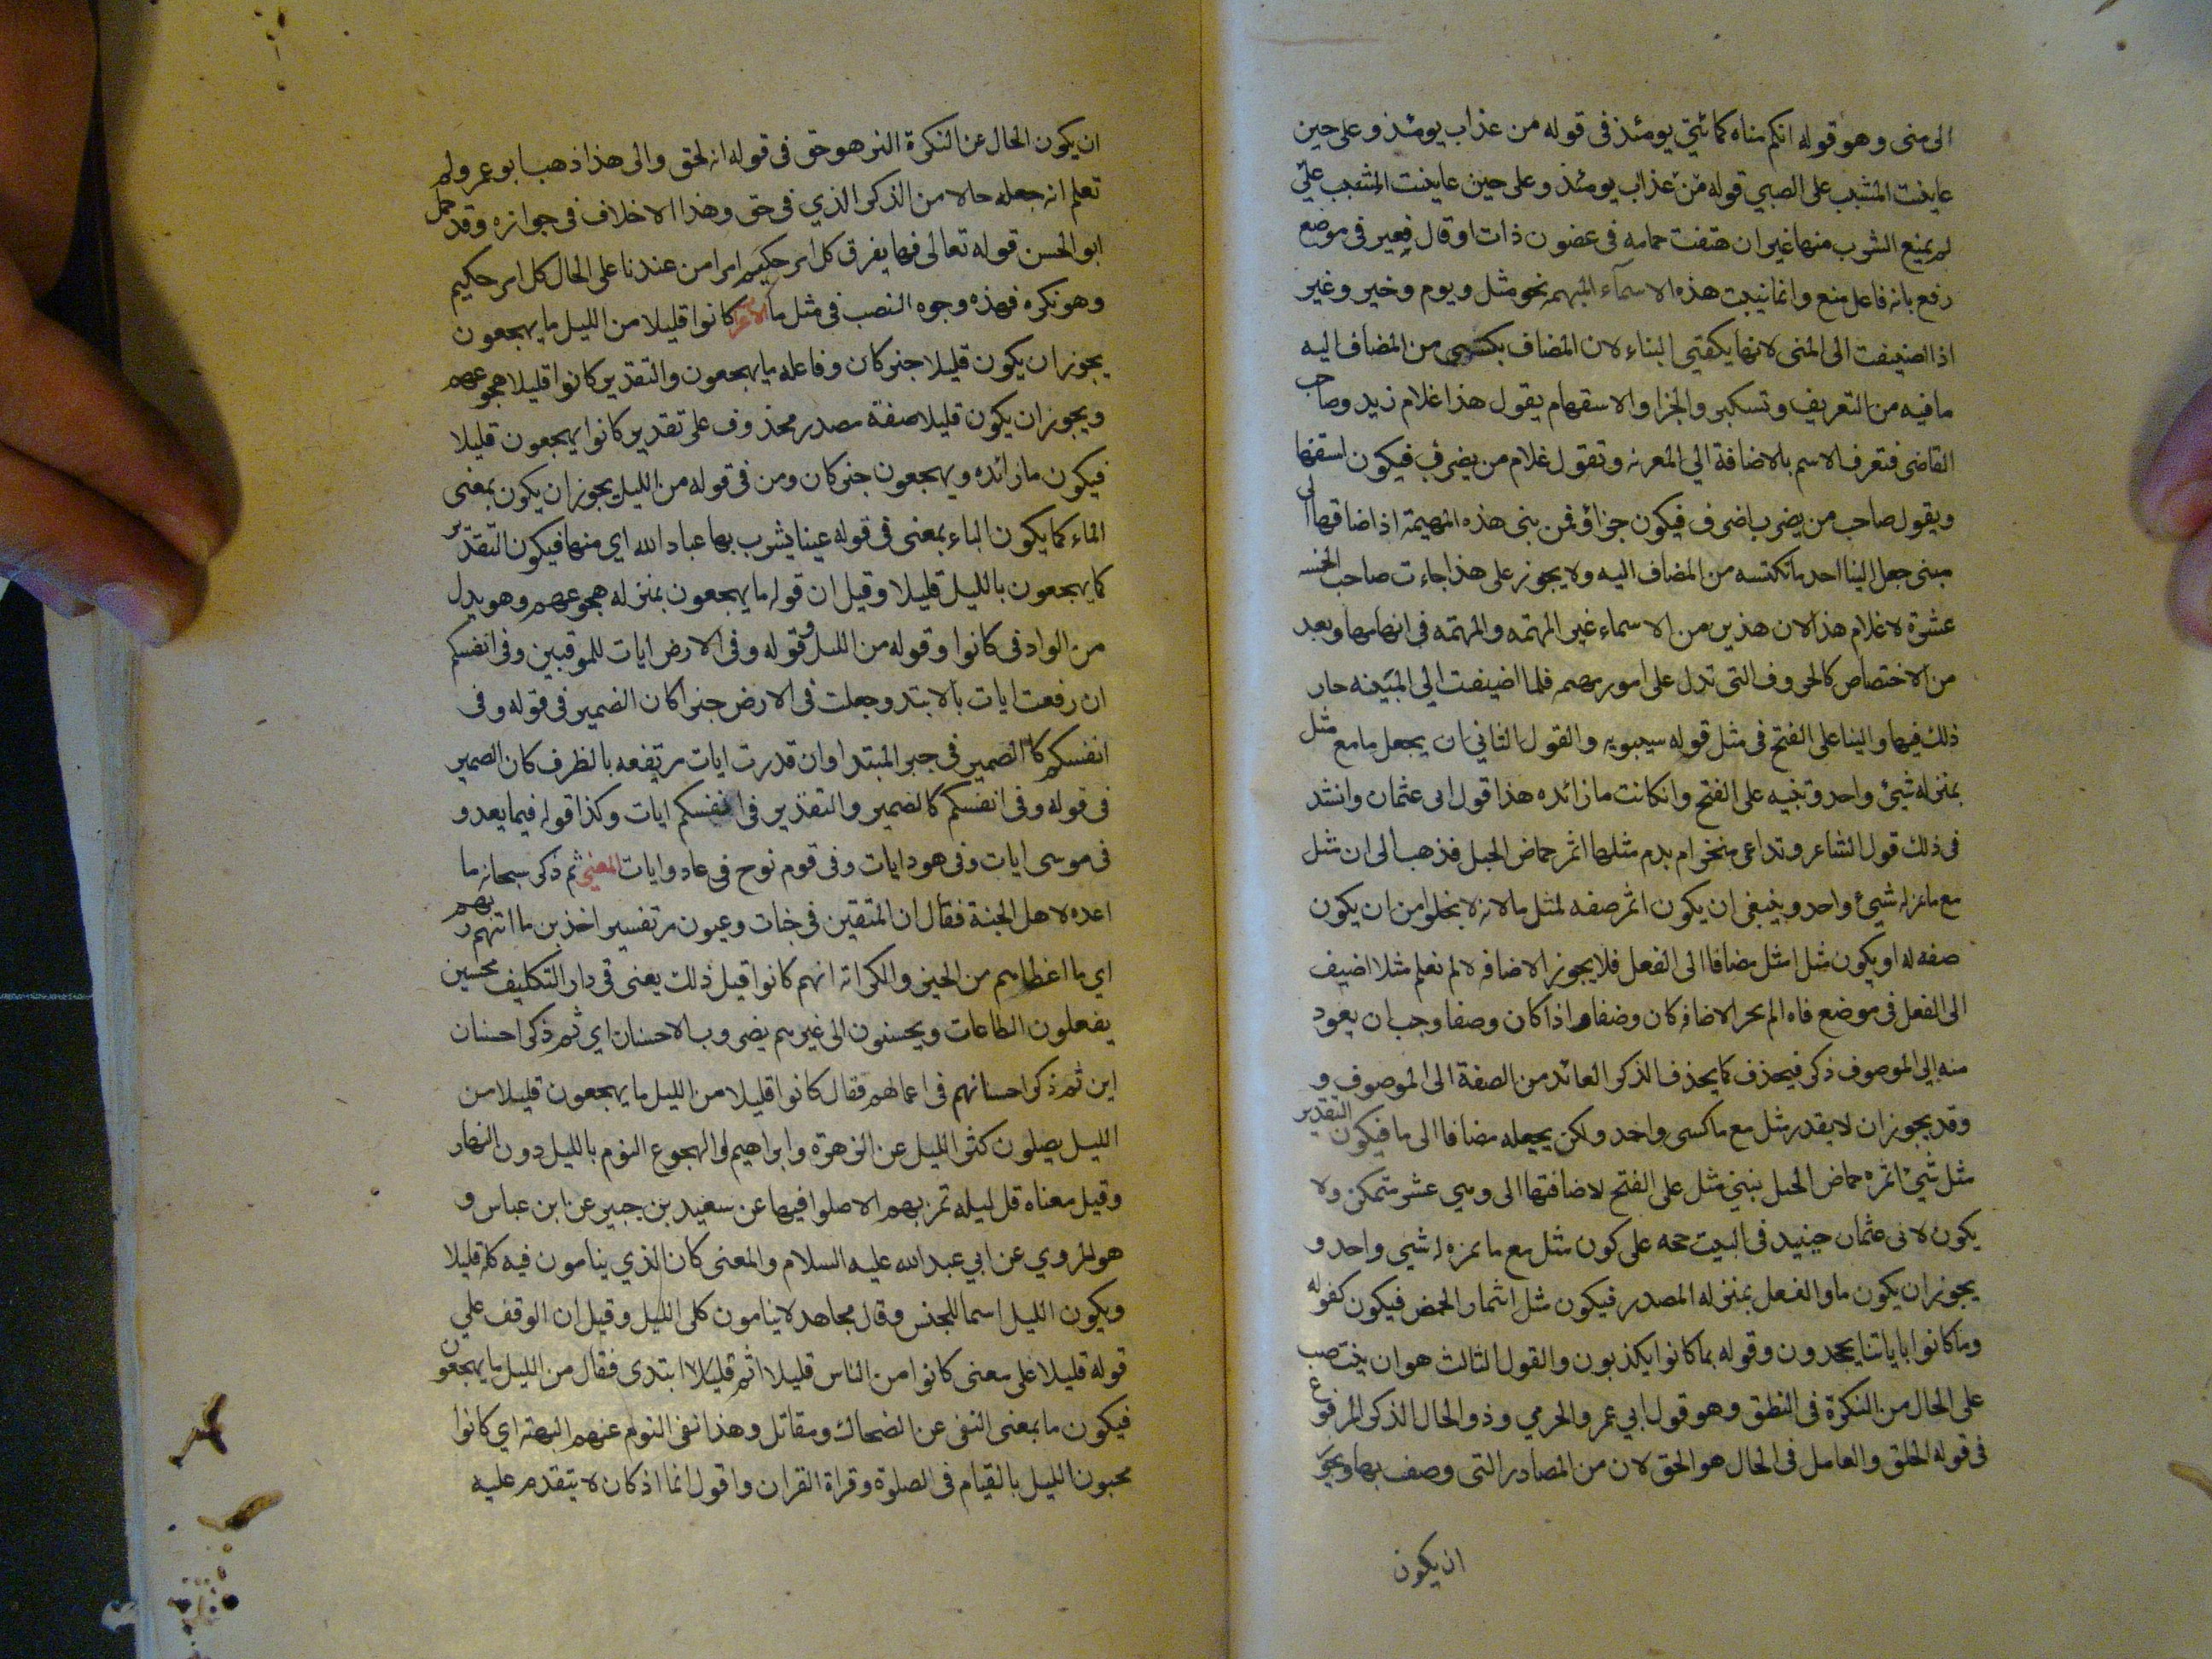 الى منى وهو قوله انكم مناه كما بنى يومئذ فى قوله من عذاب يومئذ وعلى حين
عاينت المشيب على الصبي قوله من عذاب يومئذ وعلى حين عاينت المشيب على
لم يمنع الشوب منها غير ان هتفت حمامه فى عضون ذات اوقال فغير فى موضع
رفع بانه فاعل منع وانما نبيت هذه الاسماء المبهمه نحو مثل ويوم وخير وغير
اذا اضيفت الى المنى لانها يكفتي البناء لان المضاف يكتسى من المضاف اليه
ما فيه من التعريف وتسكير والجزا والاسقهام يقول هذا غلام زيد وصاحب
القاضى فتعرف الاسم بالاضافة الى المعرنه وتقول غلام من يضرب فيكون اسقفها
ويقول صاحب من يضرب اضرف فيكون جزاؤ فمن بنى هذه المهيمة اذا ضافها الى
مبنى جعل البنا احد ما تكتسه من المضاف اليه ولا يجوز على هذا جاءت صاحب الخسه
عشرة لا غلام هذا لان هذين من الاسماء غير المهتمه والمهتمه فى ابهامها وبعد
من الاختصاص كالحروف التى تدل على امور مهمه فلما اضيفت الى المبنيه حار
ذلك فيها والبنا على الفتح فى مثل قوله سيبويه والقول الثاني ان يجعل ما مع مثل
بمنزله شيئ واحد وتبنيه على الفتح وانكانت ما زائده هذا قول ابى عثمان وانشد
فى ذلك قول الشاعر وتداعى منخرام بدم مثلها اثمر حماض الجبل فذهب الى ان مثل
مع ما بمنزله شيئ واحد وينبغى ان يكون اثمر صفه لمثل ما لانه لا يخلوا من ان يكون
صفه له او يكون مثل امثل مضافا الى الفعل فلا يجوز الاضافه لا لم نعلم مثلا اضيف
الى الفعل فى موضع فاه الم بحر الاضافه كان وضفاه واذا كان وصفا وجب ان يعود
منه الى الموصوف ذكر فيحذف كما يحذف الذكر العائد من الصفة الى الموصوف و
وقد يجوز ان لا يقدر مثل مع ما كسى واحد ولكن يجعله مضافا الى ما فيكون التقدير
مثل شيئ اثمره حماض الجبل نبنى مثل على الفتح لاضافتها الى وهى عشر متمكن ولا
يكون لابى عثمان حينيد فى البيت حجه على كون مثل مع ما بمنزه له شيى واحد و
يجوز ان يكون ما والفعل بمنزله المصدر فيكون مثل اثمار الحمض فيكون كقوله
وما كانوا باياتنا يجحدون وقوله بما كانوا يكذبون والقول الثالث هو ان ينتصب
على الحال من النكرة فى النطق وهو قول ابي عمر والحرمي وذو الحال الذكر المرفوع
فى قوله الحلق والعامل فى الحال هو الحق لان من المصادر التى وصف بها ويجوز
ان يكون
ان يكون الحال عن النكرة النر هو حق فى قوله انه لحق والى هذا ذهب ابو عمر ولم
تعلم انه جعله حالا من الذكر الذي فى حق وهذا الاخلاف فى جوازه وقد حمل
ابو الحسن قوله تعالى فيها يفرق كل امر حكيم امرا من عندنا على الحال كل امر حكيم
وهو نكره فهذه وجوه النصب فى مثل ما كانوا قليلا من الليل ما يهجعون
يجوز ان يكون قليلا جنر كان وفاعله ما يهجعون والتقدير كانوا قليلا هجوعهم
ويجوز ان يكون قليلا صفة مصدر محذوف على تقدير كانوا يهجعون قليلا
فيكون ما زائده ويهجعون جنر كان ومن فى قوله من الليل يجوز ان يكون بمعنى
الماء كما يكون الباء بمعنى فى قوله عينا يشرب بها عباد الله اي منها فيكون التقدير
كما يهجعون بالليل قليلا وقيل ان قوله ما يهجعون بمنزله هجوعهم وهو بدل
من الواد فى كانوا وقوله من الليل وقوله وفى الارض ايات للموقنين وفى انفسكم
ان رفعت ايات بالابتد وجعلت فى الارض جنرا كان الضمير فى قوله وفى
انفسكم كا الضمير فى جبر المبتدا وان قدرت ايات مرتفعه بالظرف كان الضمير
فى قوله وفى انفسكم كالضمير والتقدير فى انفسكم ايات وكذا قوله فيما بعد و
فى موسى ايات وفى هود ايات وفى قوم نوح فى عاد وايات المعنى ثم ذكر سبحانه ما
اعده لاهل الجنة فقال ان المتقين فى جنات وعيون مر تفسير اخذين ما اتهم ربهم
اي ما اعطاهم من الخير والكراته انهم كانوا قبل ذلك يعنى فى دار التكليف محسنين
يفعلون الطاعات ويحسنون الى غيرهم يضروب الاحسان اي ثم ذكر احسان
اين ثم ذكر احسانهم فى اعمالهم فقال كانوا قليلا من الليل ما يهجعون قليلا من
الليل يصلون كثر الليل عن الزهرة وابراهيم لو الهجوع النوم بالليل دون النهار
وقيل معناه قل ليله تمر بهم الا صلوا فيها عن سعيد بن جبير عن ابن عباس و
هو المروي عن ابي عبد الله عليه السلام والمعنى كان الذي ينامون فيه كله قليلا
ويكون الليل اسما للجنس وقال مجاهد لا ينامون كل الليل وقيل ان الوقف على
قوله قليلا على معنى كانوا من الناس قليلا اثم قليلا ابتدى فقال من الليل ما يهجعون
فيكون ما بمعنى النفى عن الضحاك ومقاتل وهذا نفى النوم عنهم البته اي كانوا
محبون الليل بالقيام فى الصلوة وقراة القران واقول انما اذ كان لا يتقدم عليه